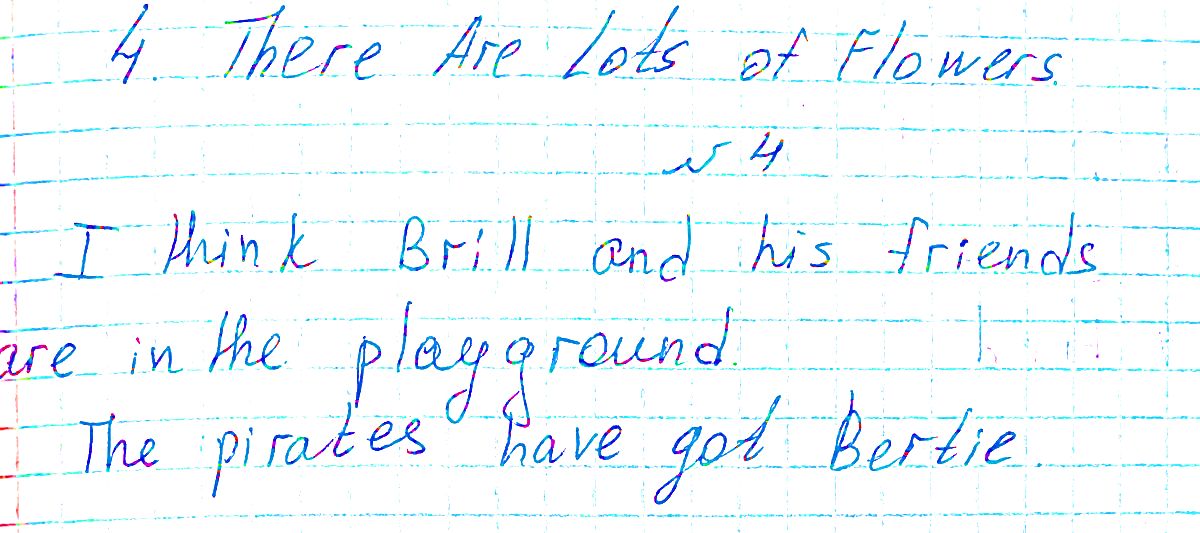 4. There Are Lots of Flowers.
№ 4
I think Brill and his friends
are in the playground.
The pirates have got Bertie.